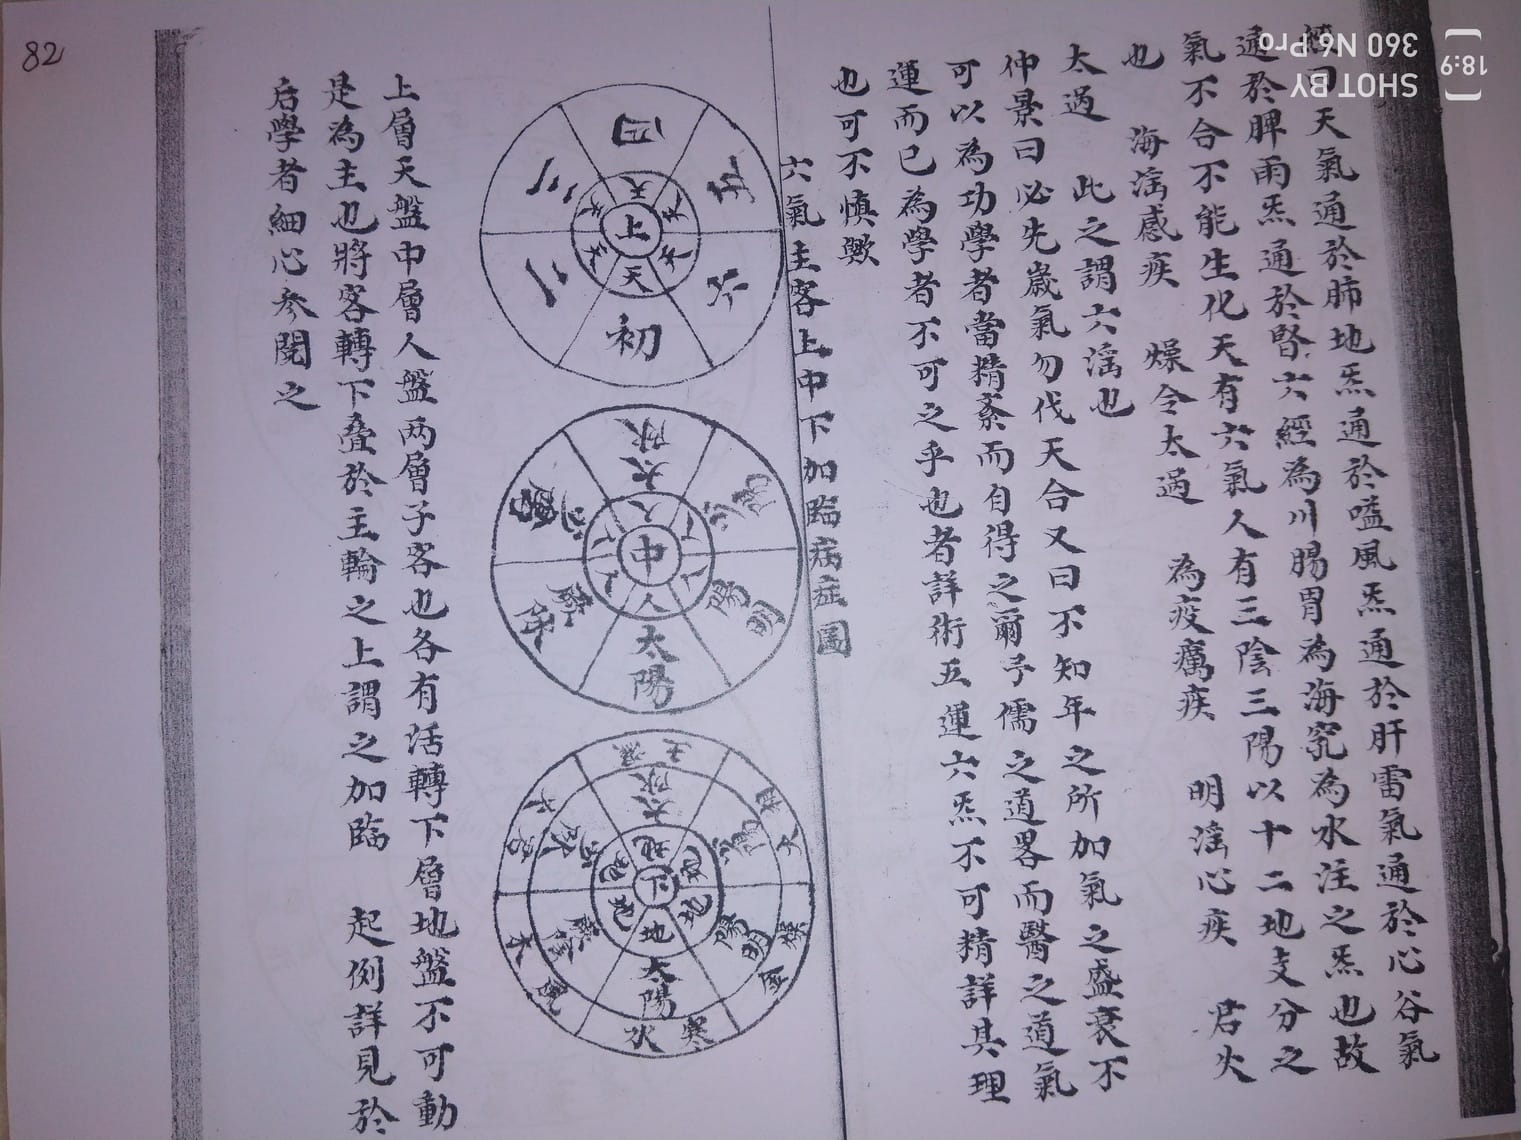 經曰天氣通於肺地炁通於嗌風炁通於肝雷氣通於心谷氣
通於脾雨炁通於腎六經為川腸胃為海究為水注之炁也故
氣不合不能生化天有六氣人有三陰三陽以十二地支分之
也 海淫感疾 燥令太過 為疫癘疾 明淫心疾 君火
太過 此之謂六淫也
仲景曰必先歲氣勿伐天合又曰不知年之所加氣之盛衰不
可以為功學者當精紊而自得之爾予儒之道畧而醫之道氣
運而已為學者不可之乎也者詳術五運六炁不可精詳其理
也可不慎歟
六氣主客上中下加臨病症圖
上
天 天 天 天 天 天
初 二 三 四 五 六
中
人 人 人 人 人 人
太陽 厥陰 太陰 少陽 陽明
下
地 地 地 地 地
太陽 厥陰 少陰 太陰 少陽 陽明
寒水 風木 土濕 相火 燥金
上層天盤中層人盤两層子客也各有活轉下層地盤不可動
是為主也將客轉下叠於主輪之上謂之加臨 起例詳見於
后學者細心参閱之
82
SHOT BY
360 N6 Pro
18:9